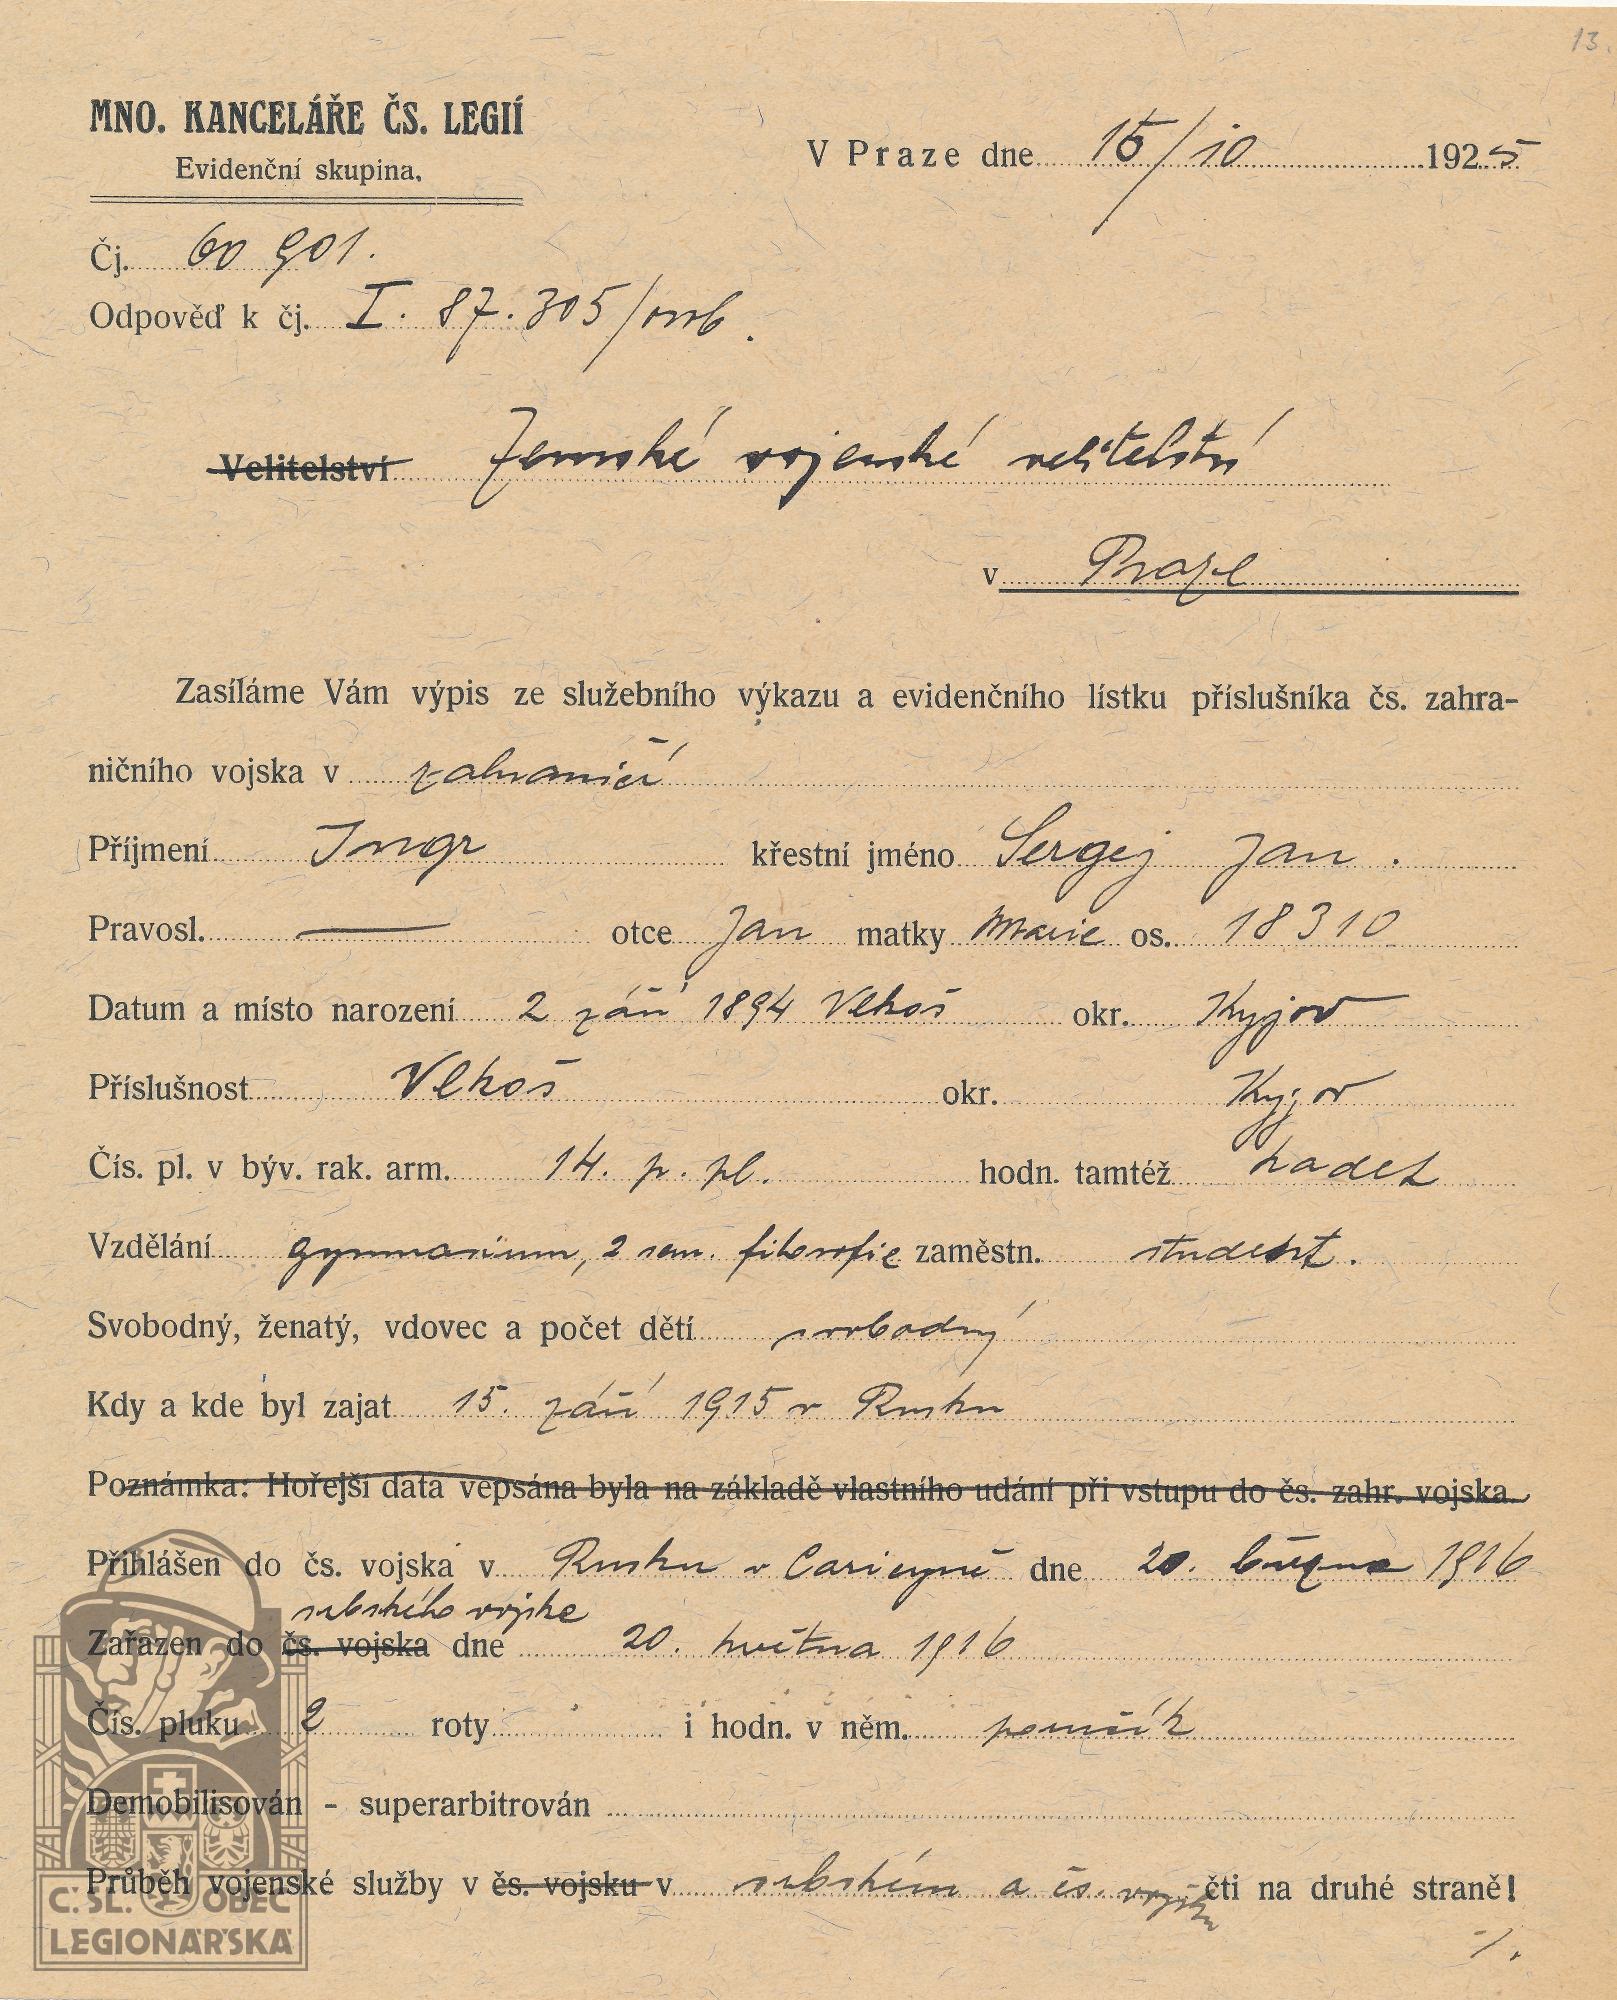 13.
MNO. KANCELÁŘE ČS. LEGIÍ
Evidenční skupina.
V Praze dne 15/10 1925
Čj. 60 901.
Odpověď k čj. I. 87.305/
Velitelství Zemské vojenské velitelství
v Praze
Zasíláme Vám výpis ze služebního výkazu a evidenčního lístku příslušníka čs. zahra-
ničního vojska v zahraničí
Příjmení Ingr křestní jméno Sergej Jan.
Pravosl. — otce Jan matky Marie os. 18310
Datum a místo narození 2 září 1894 Vlkoš okr. Kyjov
Příslušnost Vlkoš okr. Kyjov
Čís. pl. v býv. rak. arm. 14. p. pl. hodn. tamtéž kadet
Vzdělání gymnasium, 2 sem. filosofie zaměstn. student.
Svobodný, ženatý, vdovec a počet dětí svobodný
Kdy a kde byl zajat 15. září 1915 v Rusku
Poznámka: Hořejší data vepsána byla na základě vlastního udání při vstupu do čs. zahr. vojska.
Přihlášen do čs. vojska v Rusku v Caricyně dne 20. března 1916
srbského vojska
Zařazen do čs. vojska dne 20. května 1916
Čís. pluku 2 roty i hodn. v něm. poručík
Demobilisován - superarbitrován
Průběh vojenské služby v čs. vojsku v srbském a čs. vojsku čti na druhé straně!
./.
Č. SL. OBEC
LEGIONÁŘSKÁ